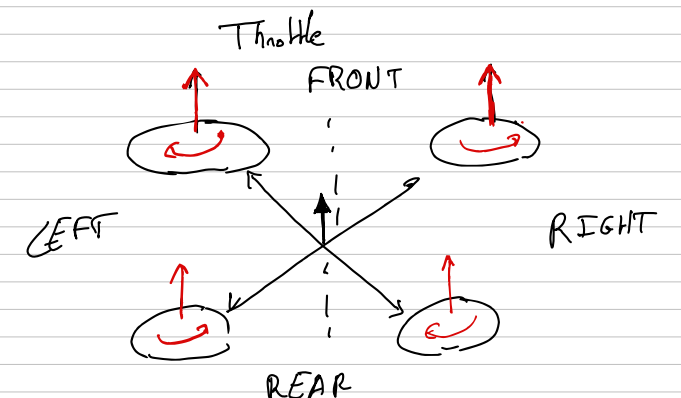 Throttle
FRONT
LEFT
RIGHT
REAR